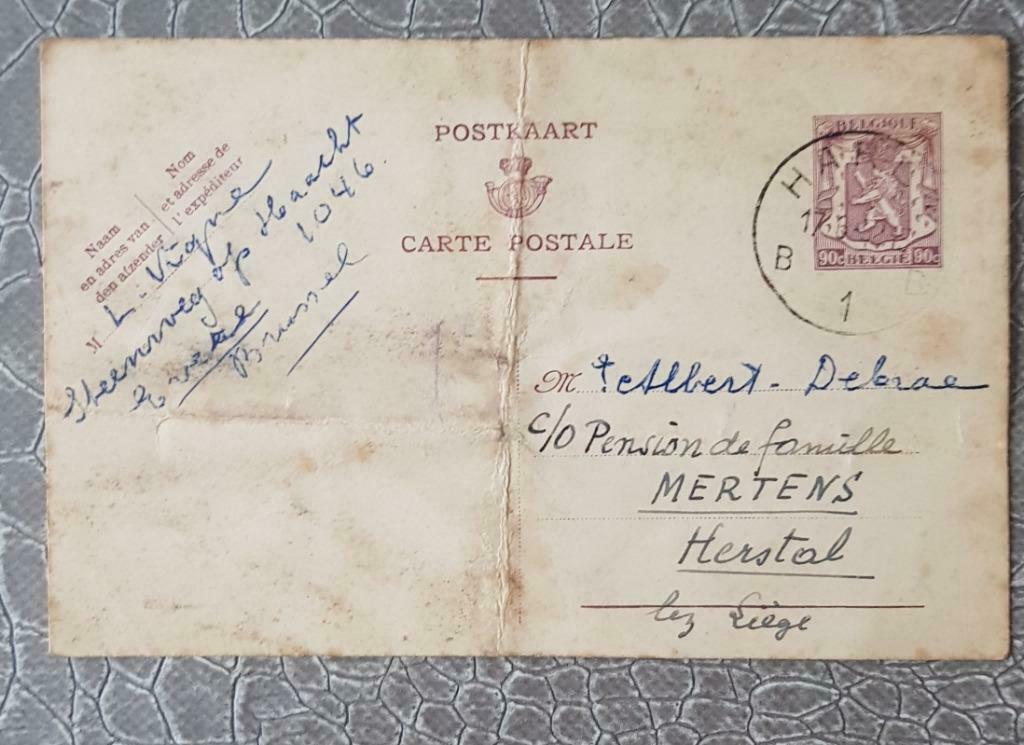 POSTKAART
CARTE POSTALE
Naam
en adres van
den afzender
Nom
et adresse de
l'expéditeur
M
L. Vigne
Steenweg op Haacht
1046
Brussel
BELGIQUE
90c BELGIË 90c
HA
17
B B
1
M Albert - Debrae
c/o Pension de famille
MERTENS
Herstal
lez Liége